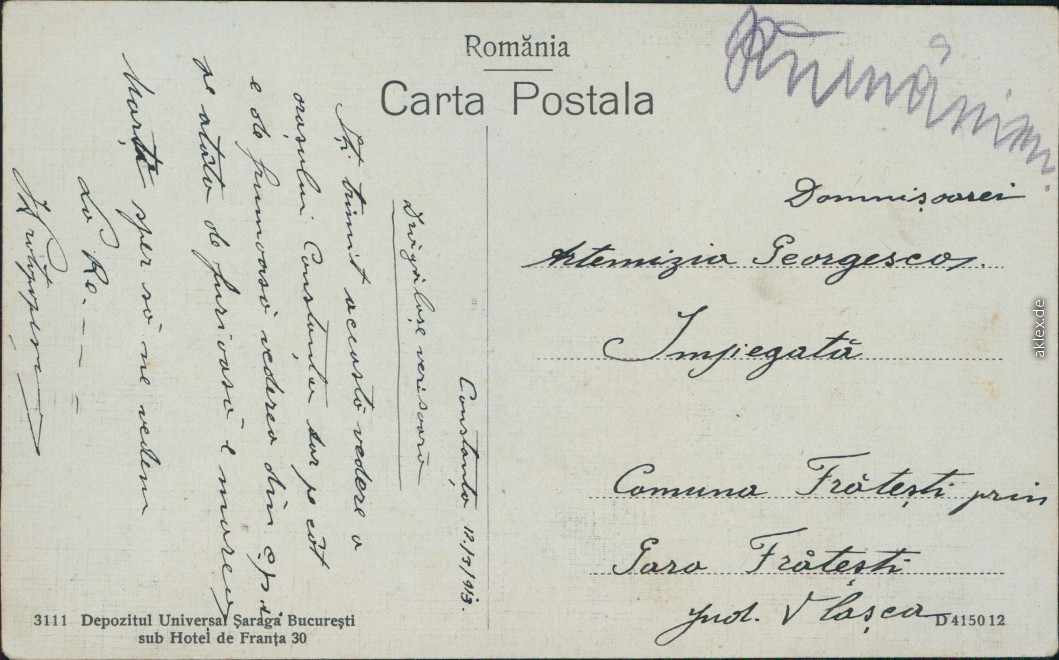 România
Carta Postala
România
Domnișoarei
Artemizia Georgescu.
Impiegată
Comuna Frătești prin
Gara Frătești
jud. Vlașca
Constanța 12/3/913.
Drăgălașe verișoară
Îți trimit această vedere a
orașului Constanța dar pe cât
e de frumoasă vederea din
pe atâta de furioasă e marea
sper să ne vedem
La Re.
3111 Depozitul Universal Șaraga București
sub Hotel de Franța 30
D 415012
aklex.de